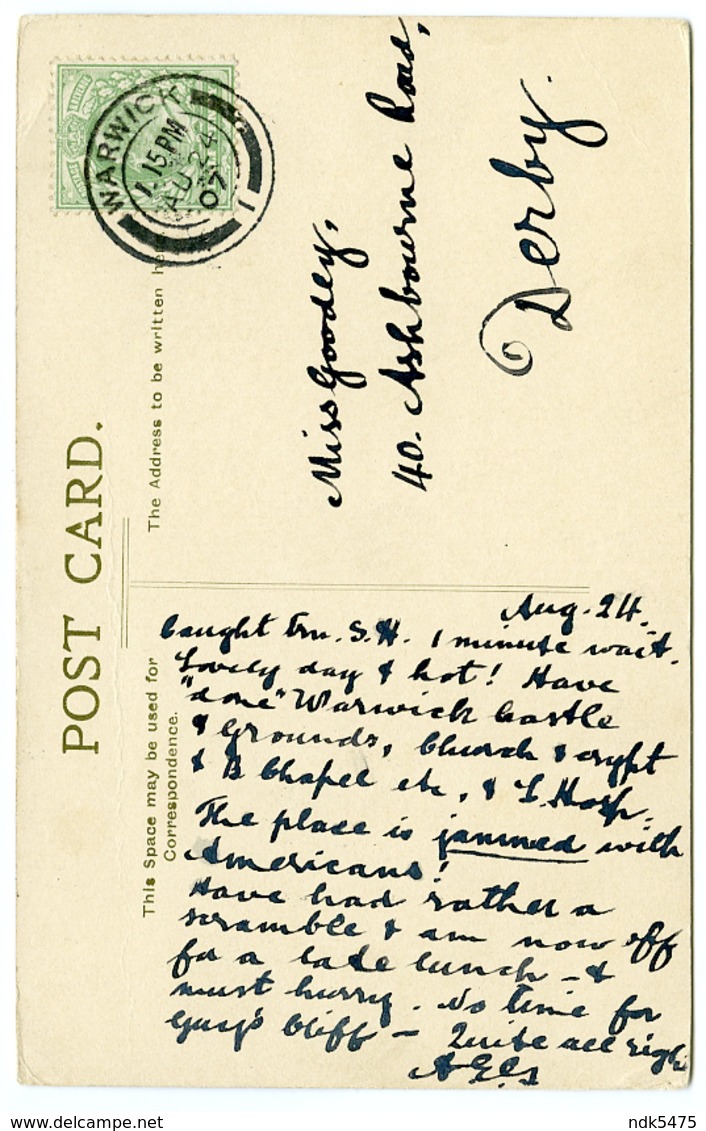 POST CARD.
The Address to be written
This Space may be used for
Correspondence.
WARWICK
1. 15 PM
AU 24
07
1
Miss Goodey,
40. Ashbourne Road,
Derby.
Aug. 24.
Caught trn. S.H. 1 minute wait.
Lovely day & hot! Have
"done" Warwick Castle
& Grounds, Church & crypt
& B Chapel etc, & L Hosp.
The place is jammed with
Americans!
Have had rather a
scramble & am now off
for a late lunch - &
must hurry. No time for
Guy's Cliff - Quite all
ndk5475